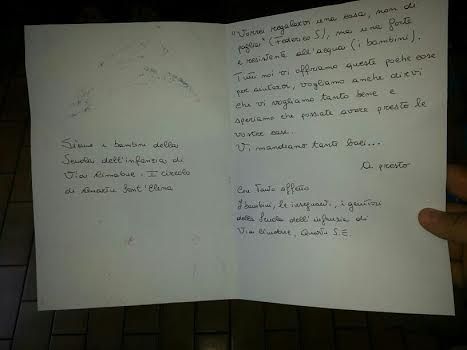 Siamo i bambini della
Scuola dell'infanzia di
Via Cimabue - I circolo
di Quartu Sant'Elena
"Vorrei regalarvi una casa, non di
paglia" (Federico S), ma una forte
e resistente all'acqua (i bambini).
Tutti noi vi offriamo queste poche cose
per aiutarvi, vogliamo anche dirvi
che vi vogliamo tanto bene e
speriamo che possiate avere presto le
vostre case..
Vi mandiamo tanti baci...
A presto
Con Tanto affetto
I bambini, le insegnanti, i genitori
della Scuola dell'infanzia di
Via Cimabue, Quartu S.E.